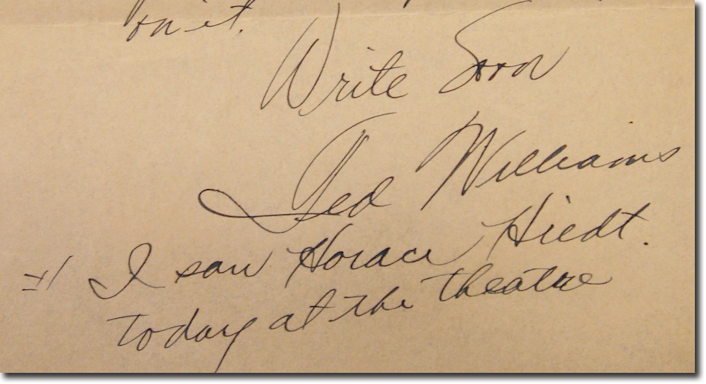 on it.
Write Soon
Ted Williams
I saw Horace Hiedt.
today at the theatre